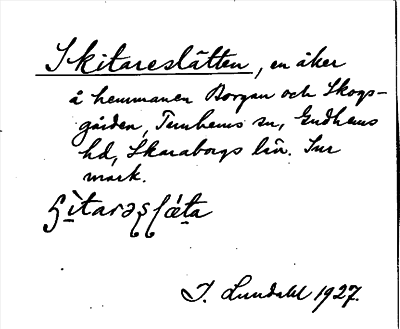 Skitareslätten, en åker
å hemmanen Borgan och Skogs-
gården, Tunhems sn, Gudhems
hd, Skaraborgs län. Sur
mark.
J. Lundahl 1927.